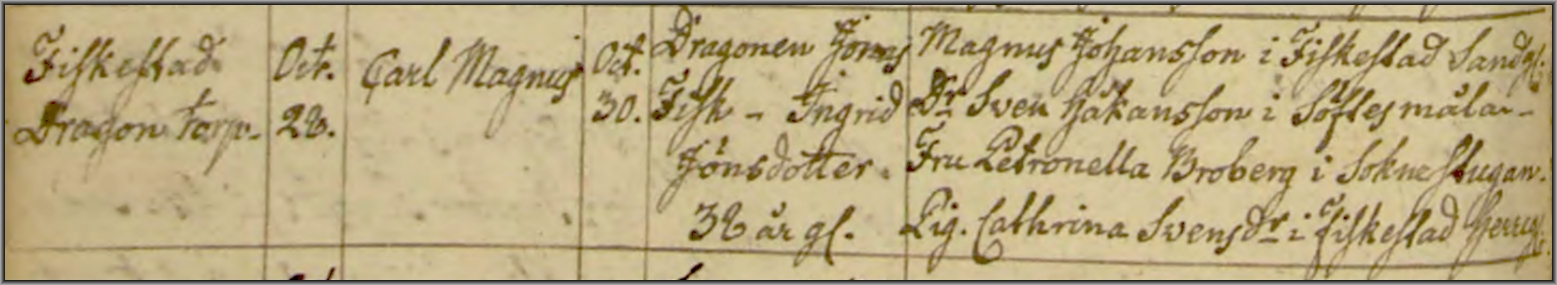 Fiskestad
Dragon torp.
Oct.
28.
Carl Magnus
Oct.
30.
Dragonen Jonas
Fisk - Ingrid
Jönsdotter.
38 år gl.
Magnus Johansson i Fiskestad Sandg:
Dr Sven Håkansson i Löftesmåla -
Fru Petronella Broberg i Soknestugan.
Pig. Cathrina Svensdr i Fiskestad Herrg: